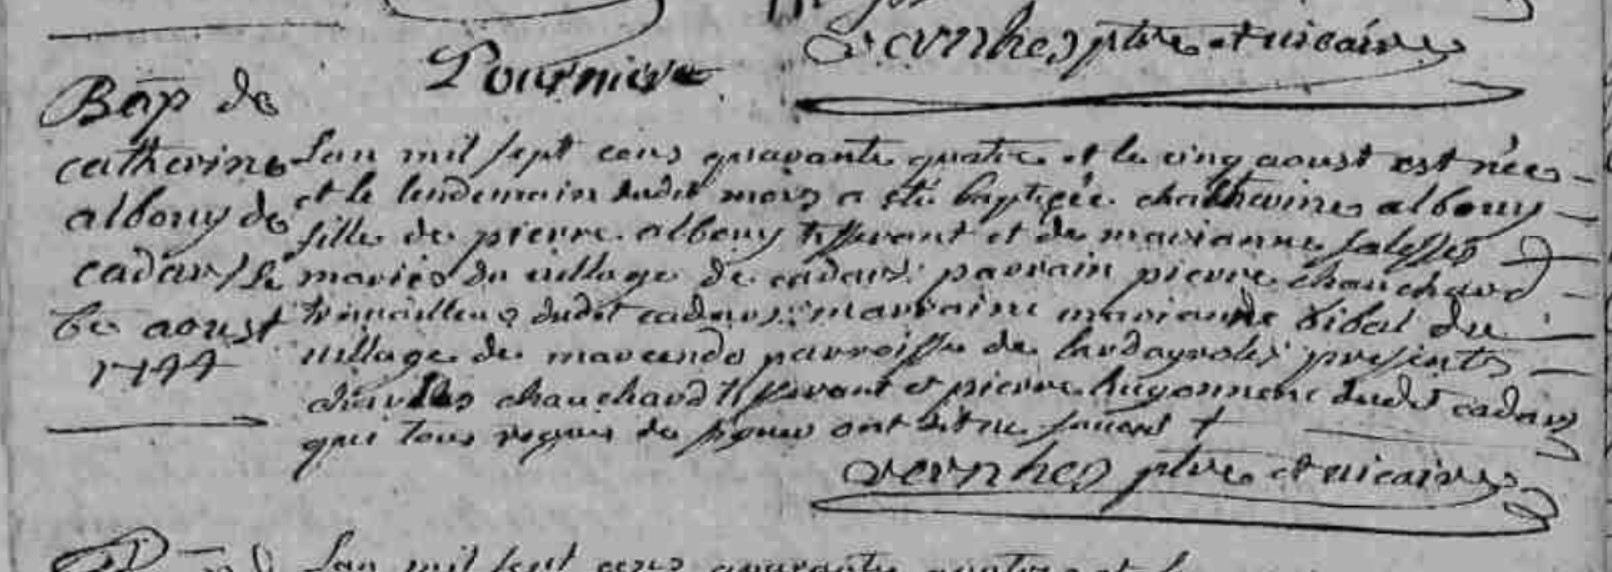 vernhes ptre et vicaire
Fournier
Bap de
catherine
albouy de
cadars le
6e aoust
1744
Lan mil sept cens quarante quatre et le cinq aoust est née
et le lendemain dudit mois a été baptisée chatherine albouy
fille de pierre albouy tisserant et de marianne salesses
mariés du village de cadars parrain pierre chauchard
dudit cadars marraine marianne vibal du
village de marcendo parroisse de presents
chauchard tisserant et pierre hugonnenc dudit cadars
qui tous requis de signer ont dit ne savoir
vernhes ptre et vicaire
Lan mil sept cens quarante quatre et le